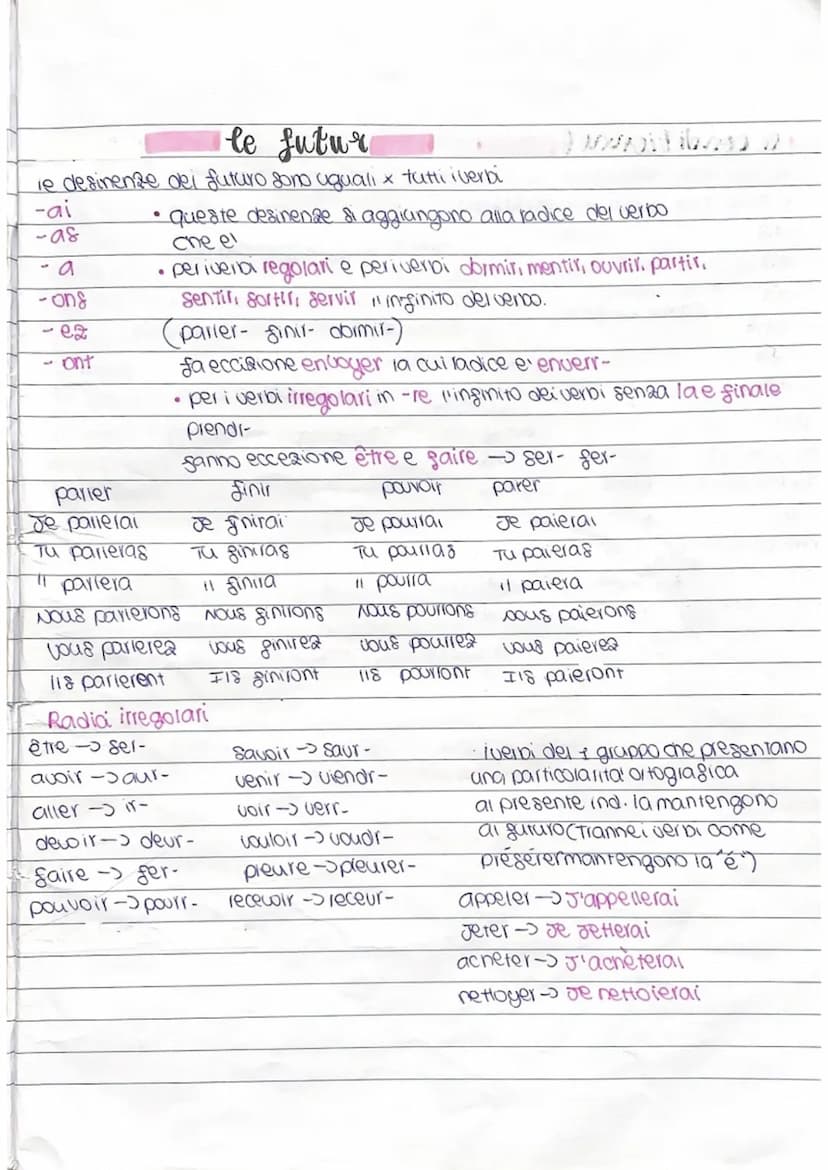 le futur
le desinenze del futuro sono uguali x tutti i verbi
-ai • queste desinenze si aggiungono alla radice del verbo
-as che è
-a • per i verbi regolari e per i verbi dormir, mentir, ouvrir, partir,
-ons sentir, sortir, servir l'infinito del verbo.
-ez (parler- finir- dormir-)
-ont fa eccizione envoyer la cui radice e' enverr-
• per i verbi irregolari in -re l'infinito dei verbi senza la e finale
prendr-
fanno eccezione être e faire → ser- fer-
parler finir pouvoir payer
Je parlerai Je finirai Je pourrai Je paierai
Tu parleras Tu finiras Tu pourras Tu paieras
Il parlera Il finira Il pourra Il paiera
Nous parlerons Nous finirons Nous pourrons Nous paierons
Vous parlerez Vous finirez Vous pourrez Vous paierez
Ils parlerent Ils finiront Ils pourront Ils paieront
Radici irregolari
être → ser- savoir → saur- · i verbi del 1 gruppo che presentano
avoir → aur- venir → viendr- una particolarità ortografica
aller → ir- voir → verr- al presente ind. la mantengono
devoir → devr- vouloir → voudr- al futuro (tranne i verbi come
faire → fer- pleure → pleurer- préférer mantengono la "é")
pouvoir → pourr- recevoir → recevr- appeler → J'appellerai
Jeter → Je Jetterai
acheter → J'achèterai
nettoyer → Je nettoierai